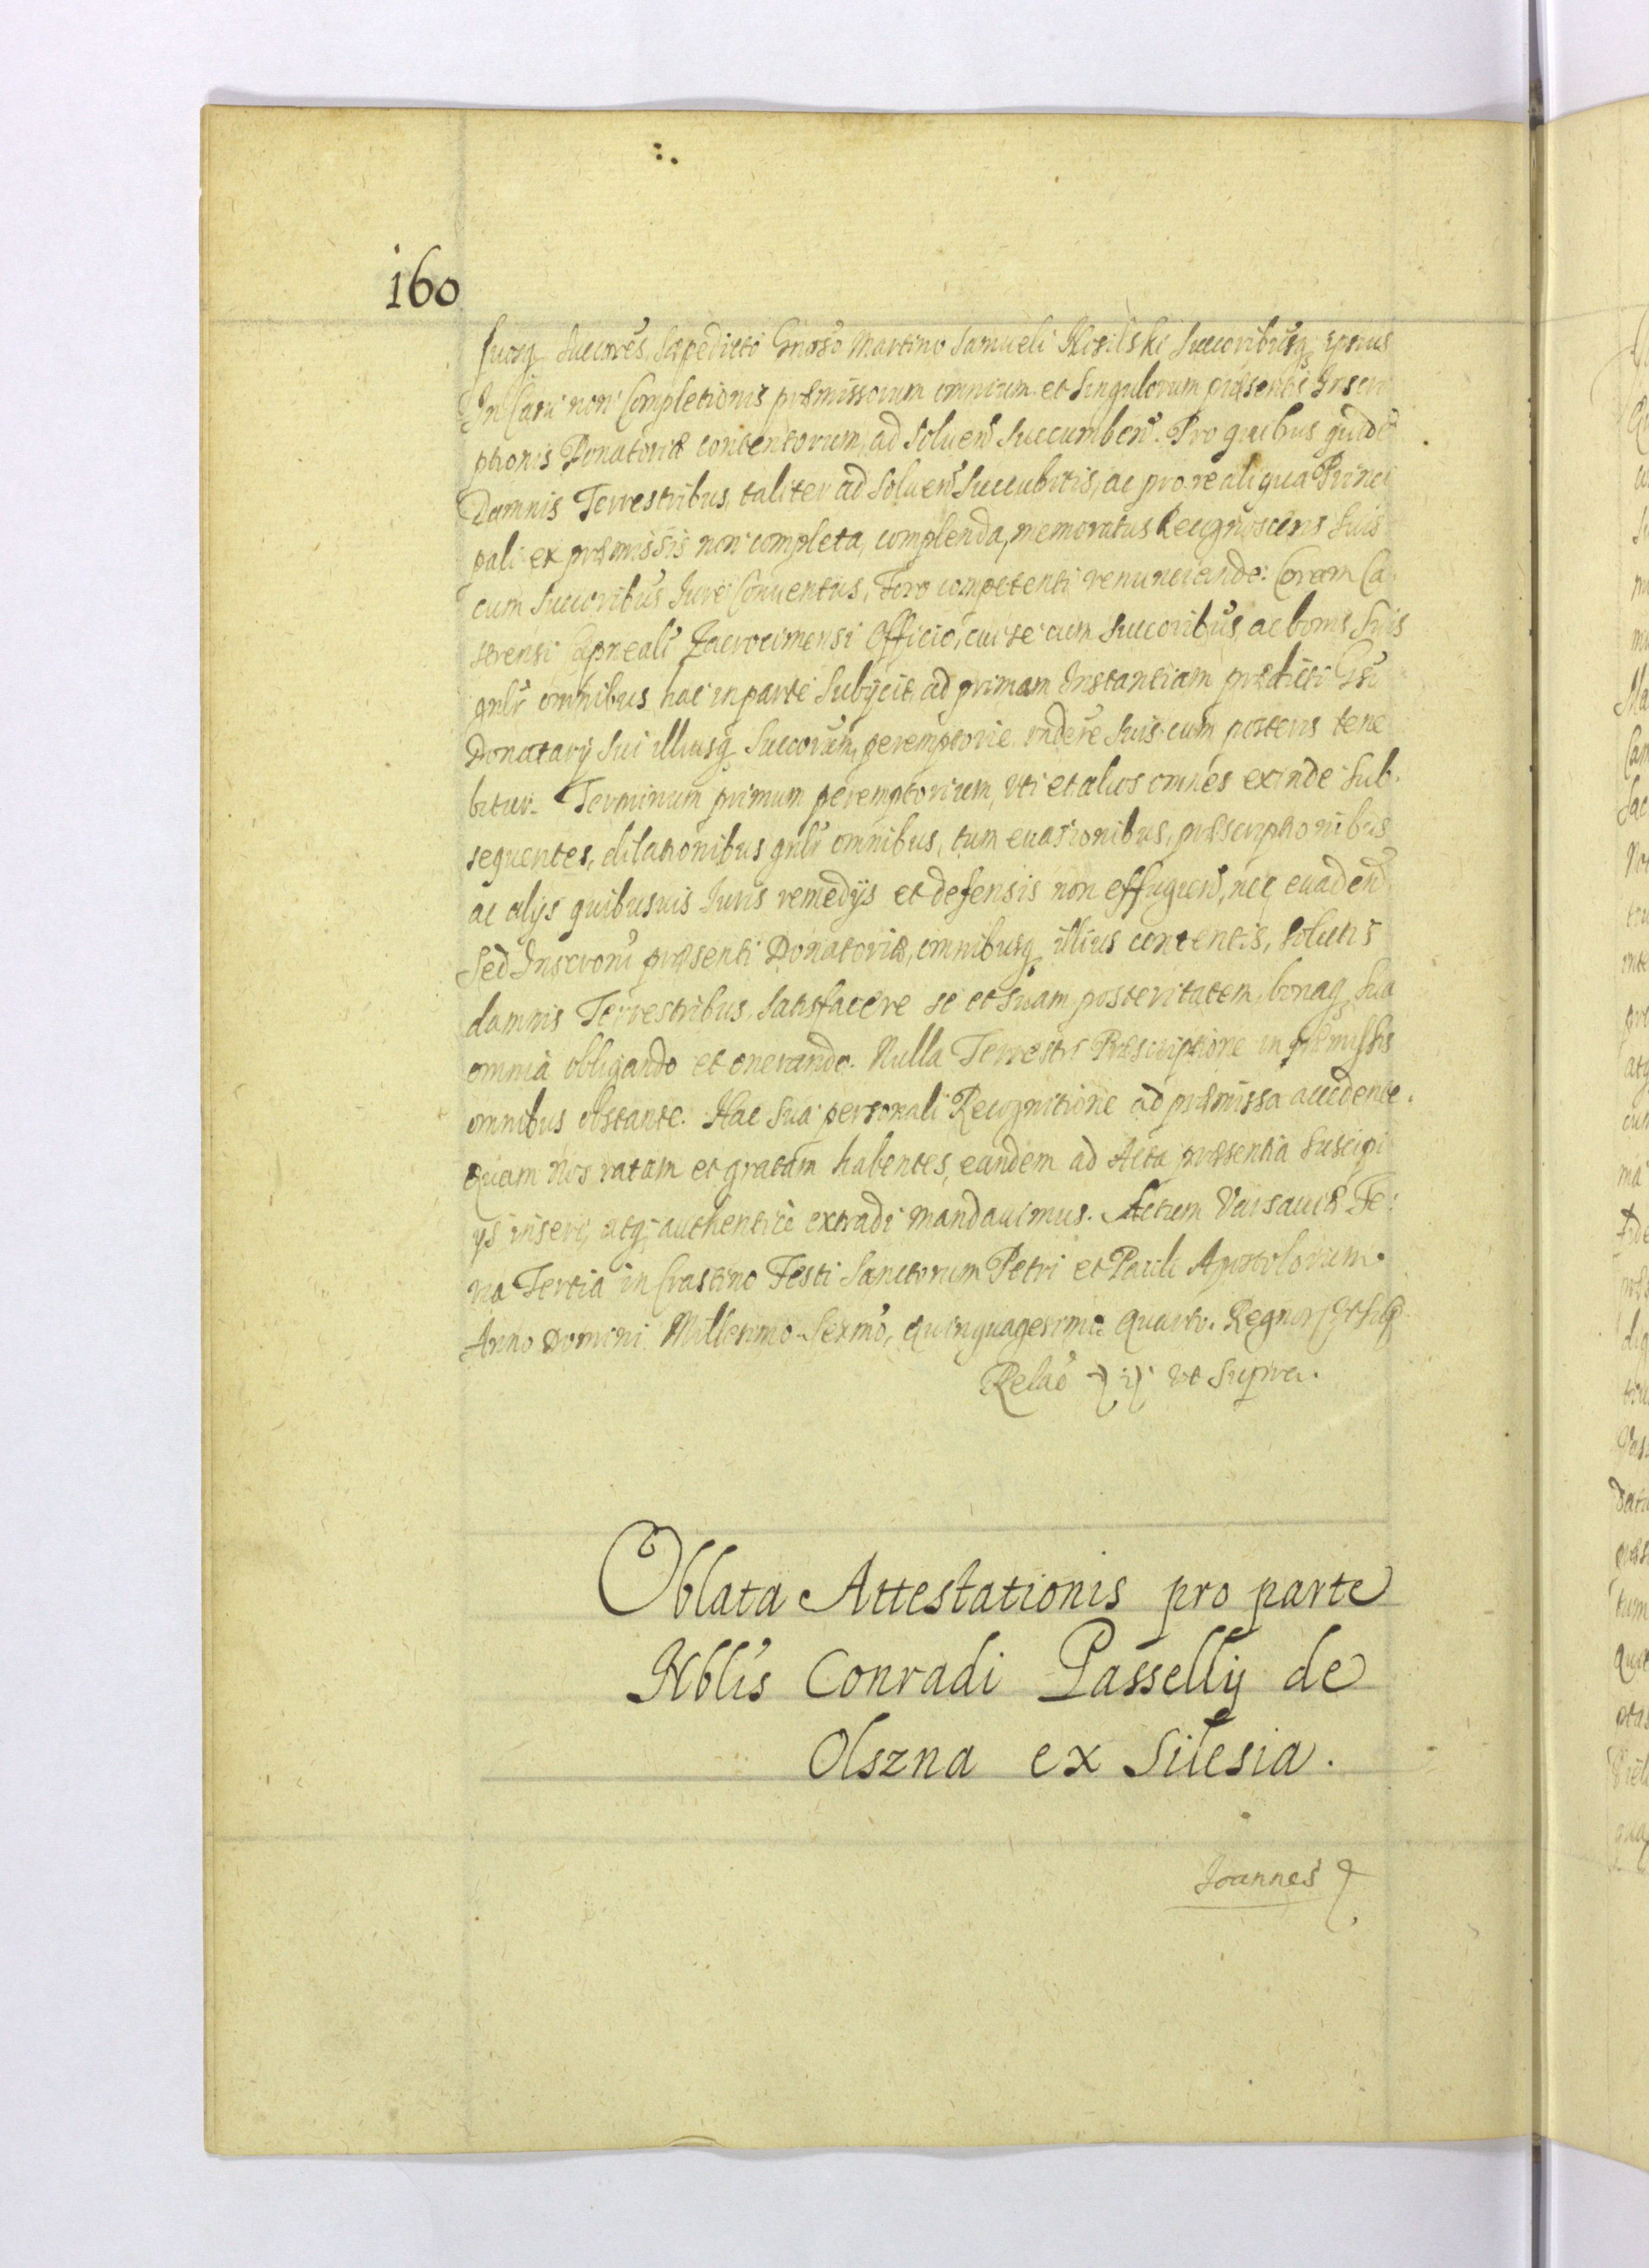 160
suosq Succores, Saepedicto Gnoso Martino Samueli Succoribusq ipsius
In Casu non Completionis praemissorum omnium et Singulorum praesentis Inscri
ptionis Donatoriae contentorum, ad Soluen Succumben. Pro quibus quidē
Damnis Terrestribus, taliter ad Soluen Succubitis, ac pro re aliqua Princi
pali ex praemissis non completa, complenda, memoratus Recognoscens Suis
cum Succoribus Jure Conuentus, Foro competenti renunciando: Coram Ca
strensi Capneali Zacrocimensi Officio, cui se cum Succoribus ac bonis Suis
gnlr omnibus hac in parte Subijcit, ad primam Instantiam praedicti Gsi
Donatarij Sui illiusq Succorum, peremptorie rndere Suis cum posteris tene
bitur. Terminum primum peremptorium, Vti et alios omnes exinde Sub.
sequentes, dilationibus gnlr omnibus, tum euasionibus, praescriptionibus
ac alijs quibusuis Iuris remedijs et defensis non effugien, nec euaden
Sed Inscroni praesenti Donatoriae, omnibusq illius contentis, Solutis
damnis Terrestribus, Satisfacere se et Suam posteritatem, bonaq Sua
omnia obligando et onerando. Nulla Terrestri Praescriptione in praemissis
omnibus obstante. Hac Sua personali Recognitione ad praemissa accedente.
Quam Nos ratam et gratam habentes, eandem ad Acta praesentia Suscipi
ijs inseri, atq authentice extradi mandauimus. Actum Varsauiae Fe:
ria Tertia in Crastino Festi Sanctorum Petri et Pauli Apostolorum.
Anno Domini Millesimo Sexmo, Quinquagesimo Quarto. Regnor
Relao vt Supra.
Oblata Attestationis pro parte
Nblis Conradi Passellij de
Olszna ex Silesia.
Joannes